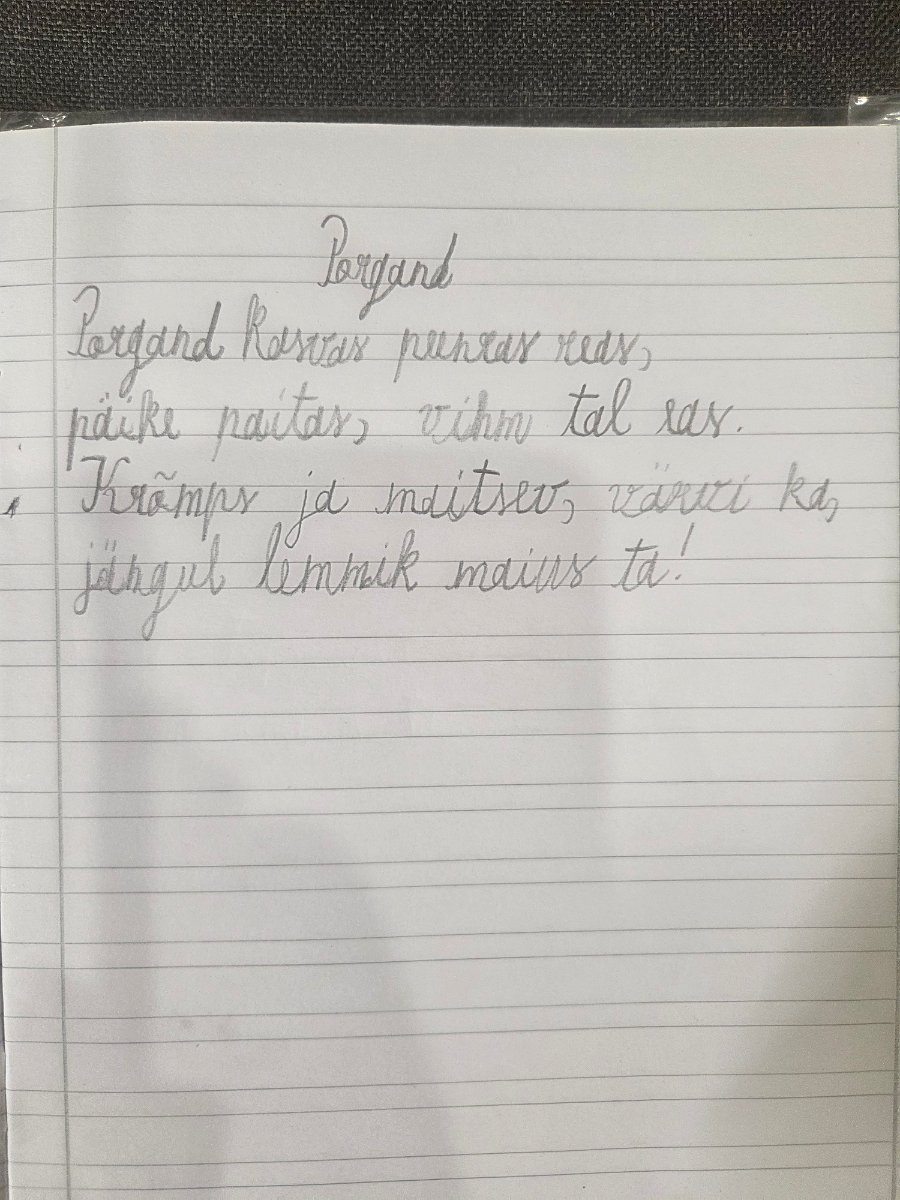 Porgand
Porgand kasvas peenras reas,
päike paitas, vihm tal sas.
Krõmps ja maitsev, värvi ka,
jängul lemmik maius ta!